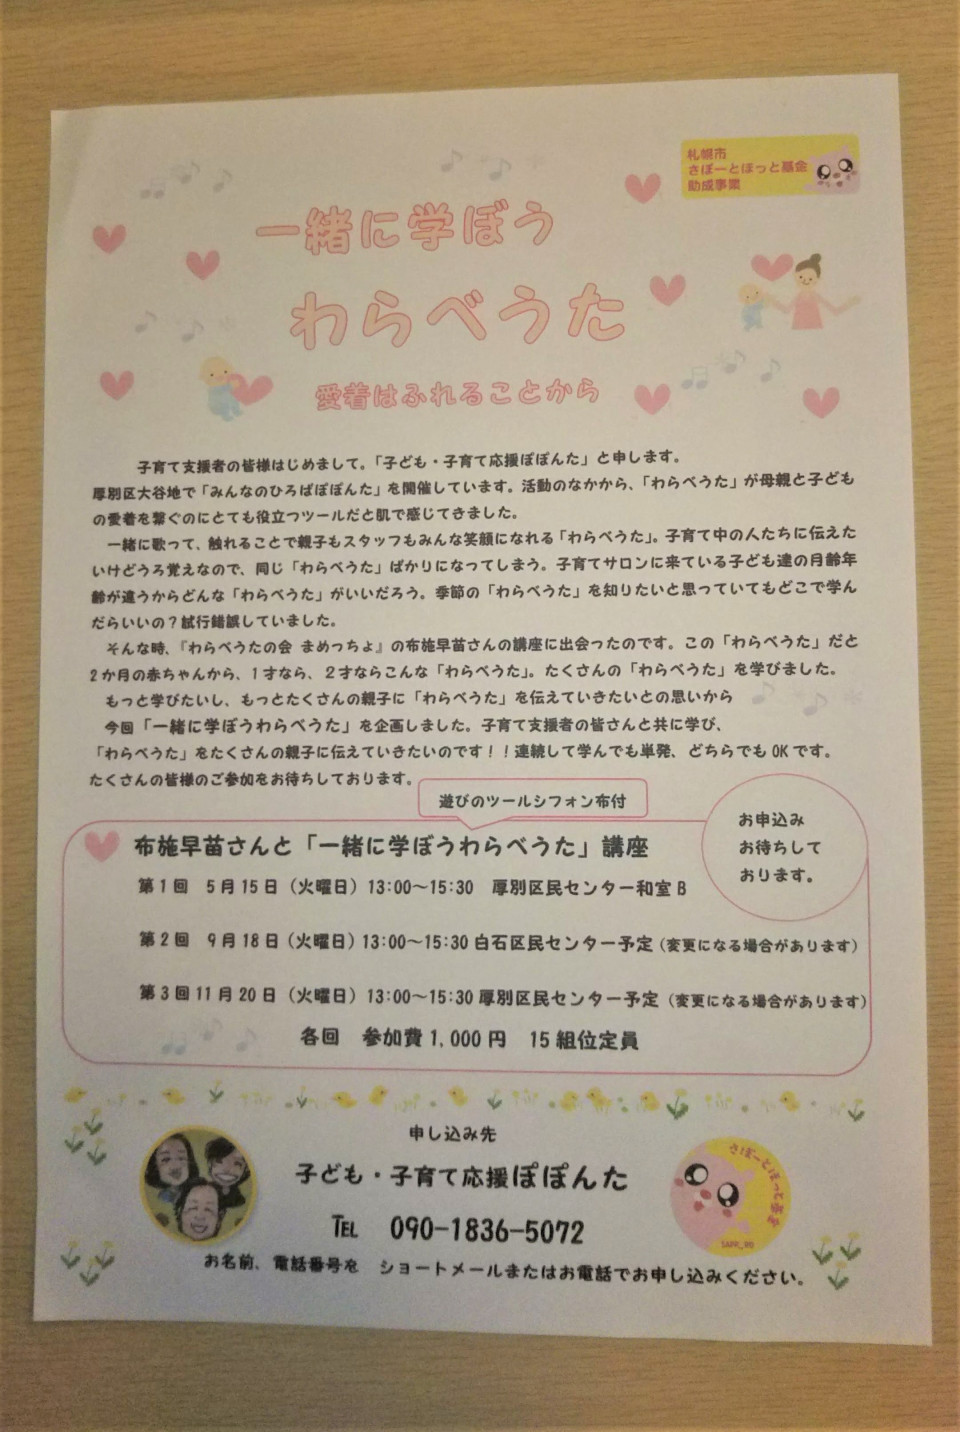 札幌市
さぽーとほっと基金
助成事業
一緒に学ぼう
わらべうた
愛着はふれることから
子育て支援者の皆様はじめまして。「子ども・子育て応援ぽぽんた」と申します。
厚別区大谷地で「みんなのひろばぽぽんた」を開催しています。活動のなかから、「わらべうた」が母親と子ども
の愛着を繋ぐのにとても役立つツールだと肌で感じてきました。
一緒に歌って、触れることで親子もスタッフもみんな笑顔になれる「わらべうた」。子育て中の人たちに伝えた
いけどうろ覚えなので、同じ「わらべうた」ばかりになってしまう。子育てサロンに来ている子ども達の月齢年
齢が違うからどんな「わらべうた」がいいだろう。季節の「わらべうた」を知りたいと思っていてもどこで学ん
だらいいの？試行錯誤していました。
そんな時、『わらべうたの会 まめっちょ』の布施早苗さんの講座に出会ったのです。この「わらべうた」だと
2か月の赤ちゃんから、1才なら、2才ならこんな「わらべうた」。たくさんの「わらべうた」を学びました。
もっと学びたいし、もっとたくさんの親子に「わらべうた」を伝えていきたいとの思いから
今回「一緒に学ぼうわらべうた」を企画しました。子育て支援者の皆さんと共に学び、
「わらべうた」をたくさんの親子に伝えていきたいのです！！連続して学んでも単発、どちらでもOKです。
たくさんの皆様のご参加をお待ちしております。
遊びのツールシフォン布付
お申込み
お待ちして
おります。
布施早苗さんと「一緒に学ぼうわらべうた」講座
第1回 5月15日（火曜日）13:00〜15:30 厚別区民センター和室B
第2回 9月18日（火曜日）13:00〜15:30 白石区民センター予定（変更になる場合があります）
第3回 11月20日（火曜日）13:00〜15:30 厚別区民センター予定（変更になる場合があります）
各回 参加費1,000円 15組位定員
申し込み先
子ども・子育て応援ぽぽんた
TEL 090-1836-5072
お名前、電話番号を ショートメールまたはお電話でお申し込みください。
さぽーとほっと基金